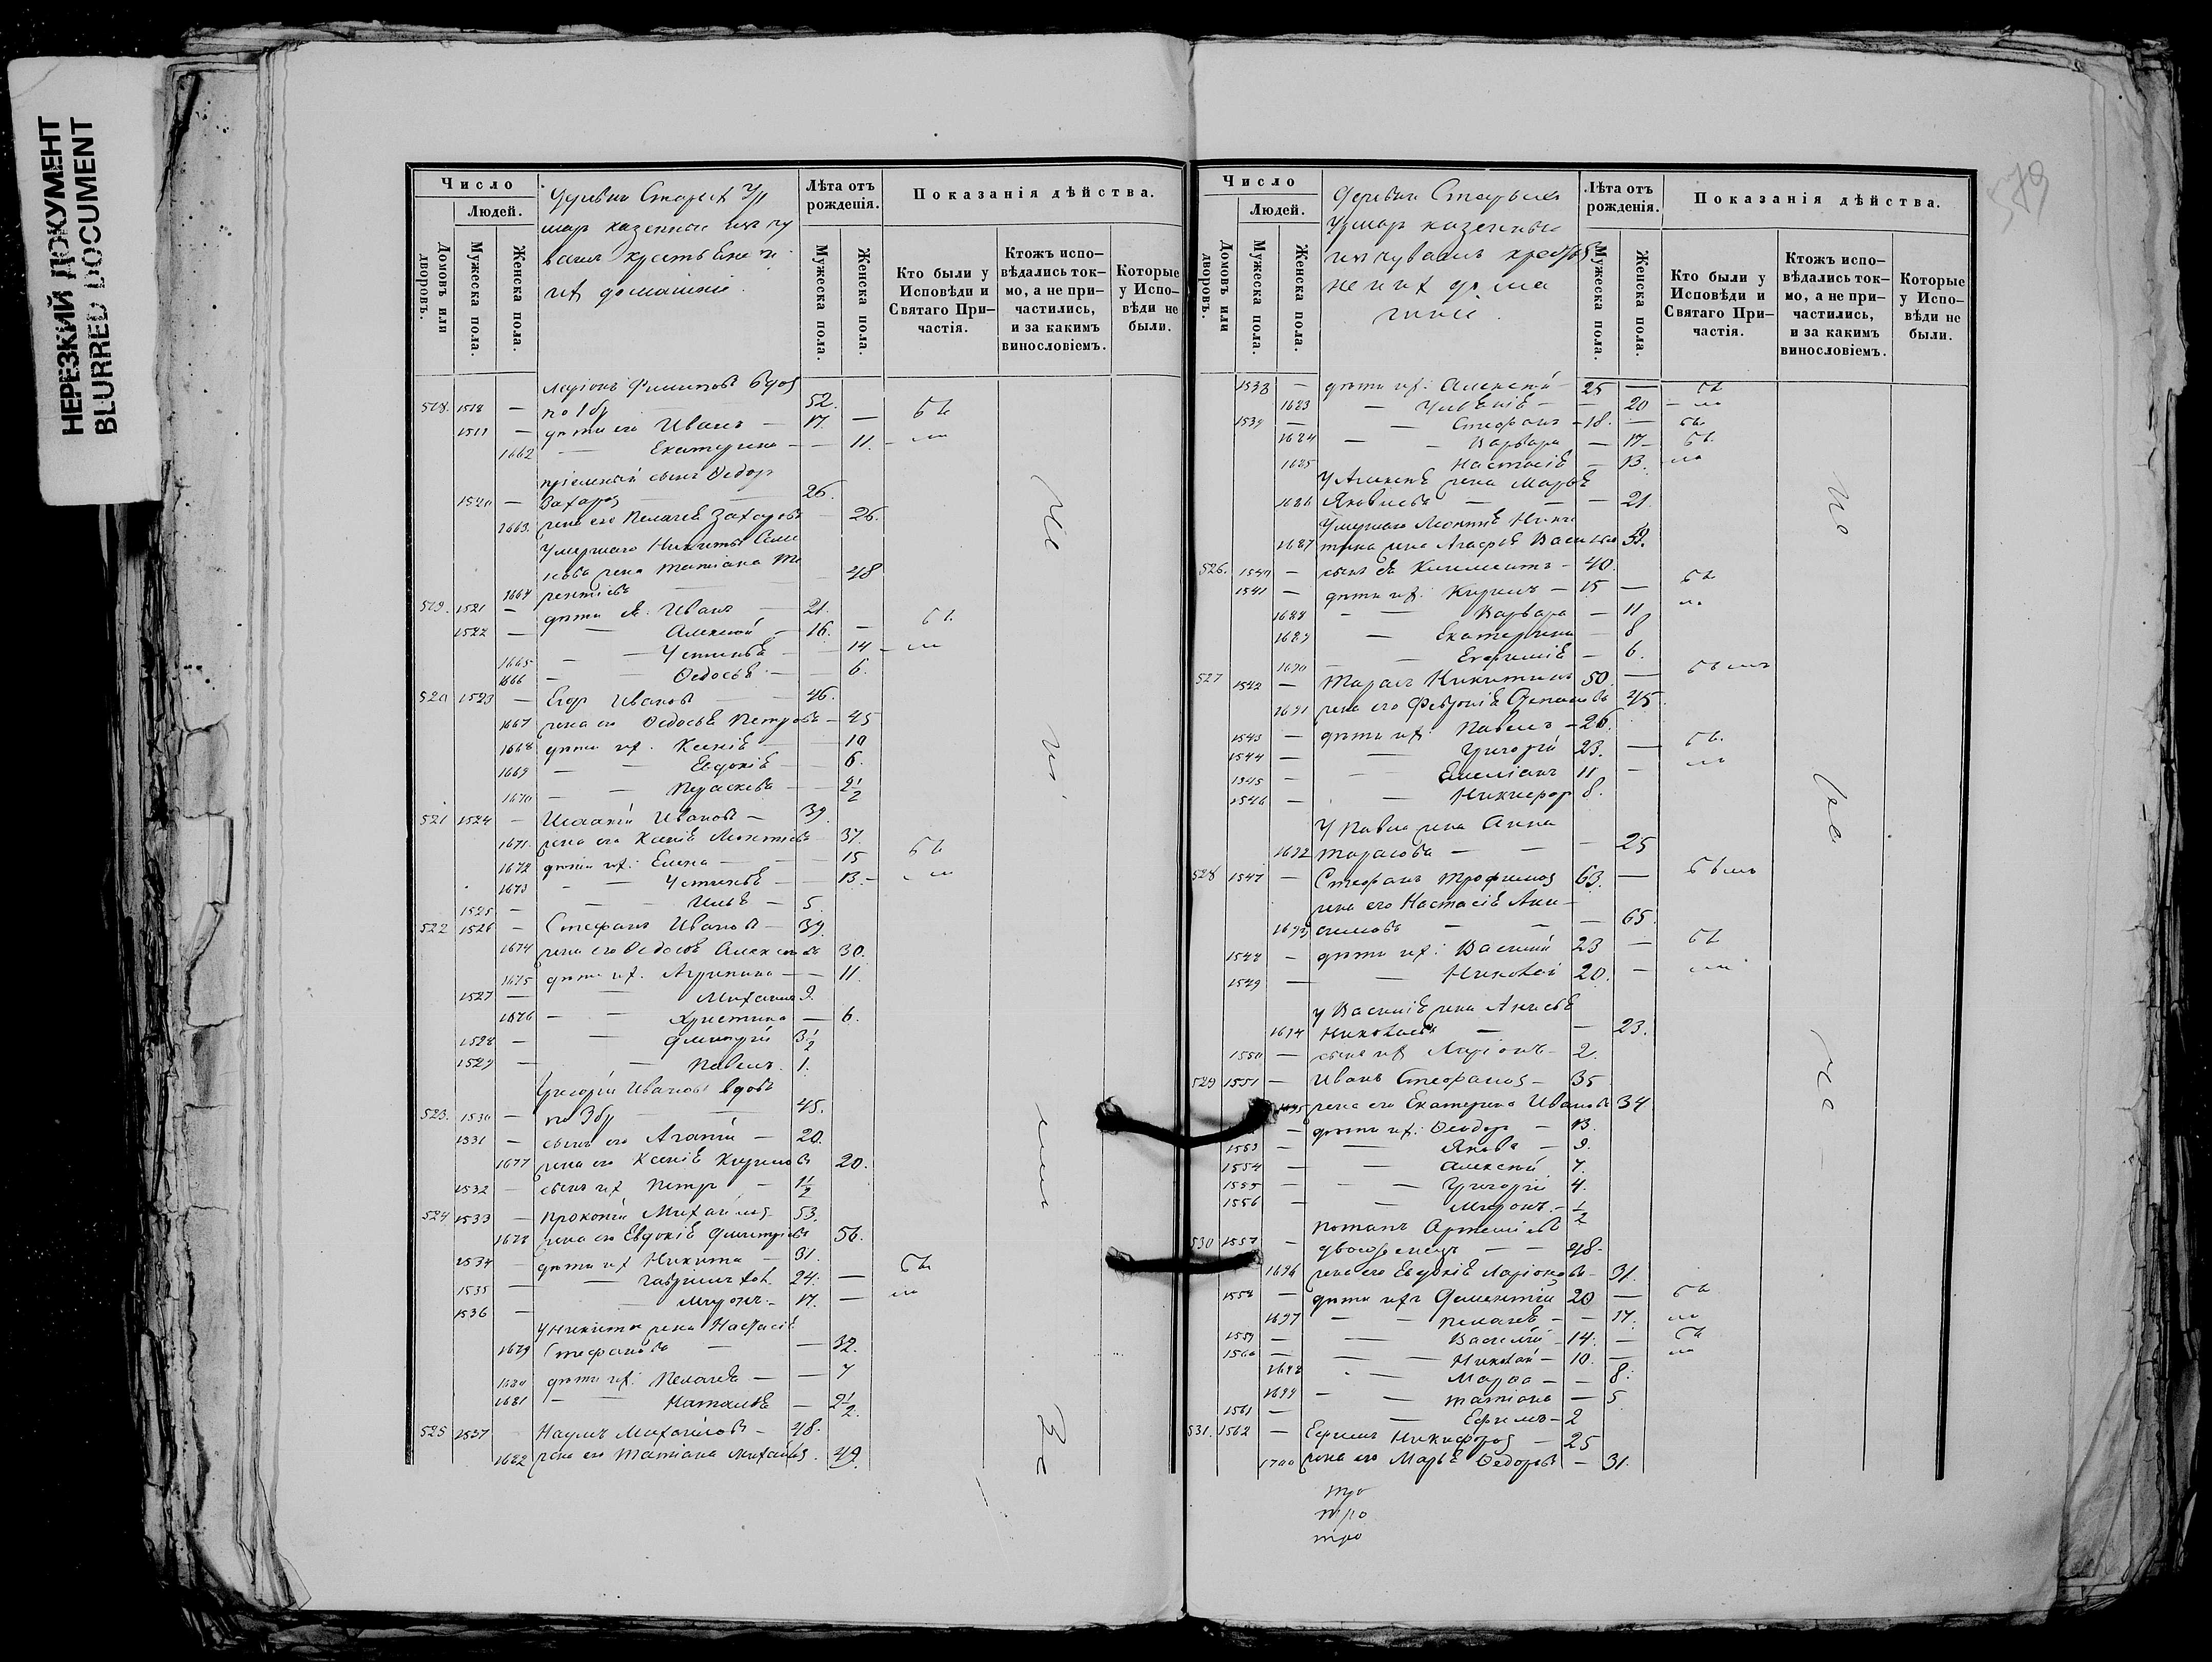 НЕРЕЗКИЙ ДОКУМЕНТ
BLURRED DOCUMENT
Число
Людей.
Домовъ или дворовъ.
Мужеска пола.
Женска пола.
Деревни Старых Ур
мар казенные из чу
ваш крестьяне и
их домашние.
Лѣта отъ рожденія.
Мужеска пола.
Женска пола.
Показанія дѣйства.
Кто были у Исповѣди и Святаго При-частія.
Ктожъ испо-вѣдались ток-мо, а не при-частились, и за какимъ винословіемъ.
Которые у Испо-вѣди не были.
Ларіонъ Филиповъ вдов
518. 1518 — по 1 бр 52.
1519 — дѣти его Иванъ — 17. —
1662 — Екатерина — 11.
пріемный сынъ Ѳедор
1520 — Захаров 26.
1663. жена его Пелагеѣ Захарова 26.
Умершаго Никиты Семе
нова жена Татіана Те
1664 рентіева 48
519. 1521 — дѣти ея: Иванъ — 21.
1522 — Алексѣй — 16. —
1665 — Устинья — 14
1666 — Ѳедосья — 6.
520 1523 — Егор Иванов — 46.
1667 жена его Ѳедосья Петрова — 45
1668 дѣти их: Ксеніѣ — 10
1669 — Евдокіѣ — 6.
1670 — Параскева — 2 1/2
521 1524 — Иванов — 39.
1671. жена его Ксеніѣ Леонтіева 37.
1672 дѣти их: Елена — 15
1673 — Устинья — 13.
1525 — Илья — 5.
522 1526 — Стефанъ Иванов — 39.
1674 жена его Ѳедосья Алексѣева 30.
1675 дѣти их: Агрипина — 11.
1527 — Михаилъ 9.
1676 — Христина — 6.
1528 — Димитрій 3 1/2
1529 — Павелъ. 1.
Григорій Иванов вдовъ
523. 1530 — по 3 бр 45.
1531 — сынъ его Агапій — 20.
1677 жена его Ксеніѣ Кирилова 20.
1532 — сынъ их Петр — 1 1/2
524 1533 — Прокопій Михайлов 53.
1678 жена его Евдокіѣ Димитріева 56.
1534 — дѣти их Никита — 31.
1535 — Гавріилъ хол. 24. —
1536 — Миронъ — 17. —
У Никиты жена Настасіѣ
1679 Стефанова — 32.
1680 дѣти их: Пелагеѣ — 7
1681 — Наталья — 2 1/2.
525 1537 Наумъ Михайлов — 48.
1682 жена его Татіана Михайлов. 49.
579
Число
Людей.
Домовъ или дворовъ.
Мужеска пола.
Женска пола.
Деревни Старых
Урмар казенные
из чуваш кресть
не и их дома
шніе.
Лѣта отъ рожденія.
Мужеска пола.
Женска пола.
Показанія дѣйства.
Кто были у Исповѣди и Святаго При-частія.
Ктожъ испо-вѣдались ток-мо, а не при-частились, и за какимъ винословіемъ.
Которые у Испо-вѣди не были.
1538 — дѣти их: Алексѣй 25 —
1683 — 20
1539 — Стефанъ — 18. —
1684 — Варвара — 17
1685 Настасіѣ — 13.
У Алексѣѣ жена Марья
1686 Яковлева — 21.
Умершаго Леонтіѣ Ники
1687 тина жена Агафья Васильева 59.
526. 1540 — сынъ ея Климентъ — 40.
1541 — дѣти их: Кирилъ — 15 —
1688 — Варвара — 11
1689 — Екатерина — 8
1690 — Евфиміѣ — 6.
527 1542 — Тарасъ Никитинъ 50. —
1691 жена его Февроніѣ 45
1543 — дѣти их: Павелъ — 26.
1544 — Григорій 23. —
1545 — Емеліанъ 11 —
1546 — Никифор 8.
У Павла жена Анна
1692 Тарасова — 25
528 1547 — Стефанъ Трофимов 63. —
жена его Настасіѣ Ани
1693 симова — 65.
1548 — дѣти их: Василій 23 —
1549 — Николай 20. —
У Василіѣ жена Анисья
1694 Николаева — 23.
1550 — сынъ их Ларіонъ — 2.
529 1551 — Иванъ Стефанов — 35
1695 жена его Екатерина Иванова 34
— дѣти их: Ѳеодор — 13.
1553 — Яковъ — 9.
1554 — Алексѣй 7.
1555 — Григорій 4.
1556 — Миронъ — 1/2
Потапъ Артеміевъ
530 1557 — двоеженецъ — 48.
1696 жена его Евдокіѣ Ларіонова — 31.
1558 — дѣти их: Дементій 20 —
1697 — Пелагеѣ — 17.
1559 — Василій — 14. —
1560 — Николай — 10. —
1698 — Марѳа — 8.
1699 — Татіана — 5
1561 — Ефимъ — 2
531. 1562 — Ефимъ Никифоров — 25
1700 жена его Марья Ѳедорова — 31.
тро
тро
тро